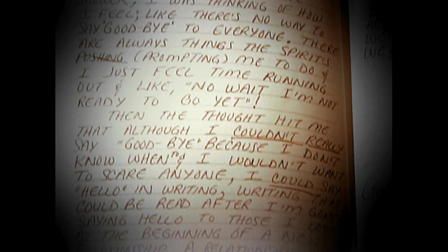 I WAS THINKING OF HOW
I FEEL; LIKE THERE'S NO WAY TO
SAY "GOOD-BYE" TO EVERYONE. THERE
ARE ALWAYS THINGS THE SPIRITS
PUSHING (PROMPTING) ME TO DO &
I JUST FEEL TIME RUNNING
OUT & LIKE, "NO WAIT I'M NOT
READY TO GO YET"!
THEN THE THOUGHT HIT ME
THAT ALTHOUGH I COULDN'T REALLY
SAY "GOOD-BYE" BECAUSE I DON'T
KNOW WHEN & I WOULDN'T WANT
TO SCARE ANYONE, I COULD SAY
"HELLO" IN WRITING, WRITING
COULD BE READ AFTER I'M GONE
SAYING HELLO TO THOSE I
AT THE BEGINNING OF A
A RELATIONSHIP